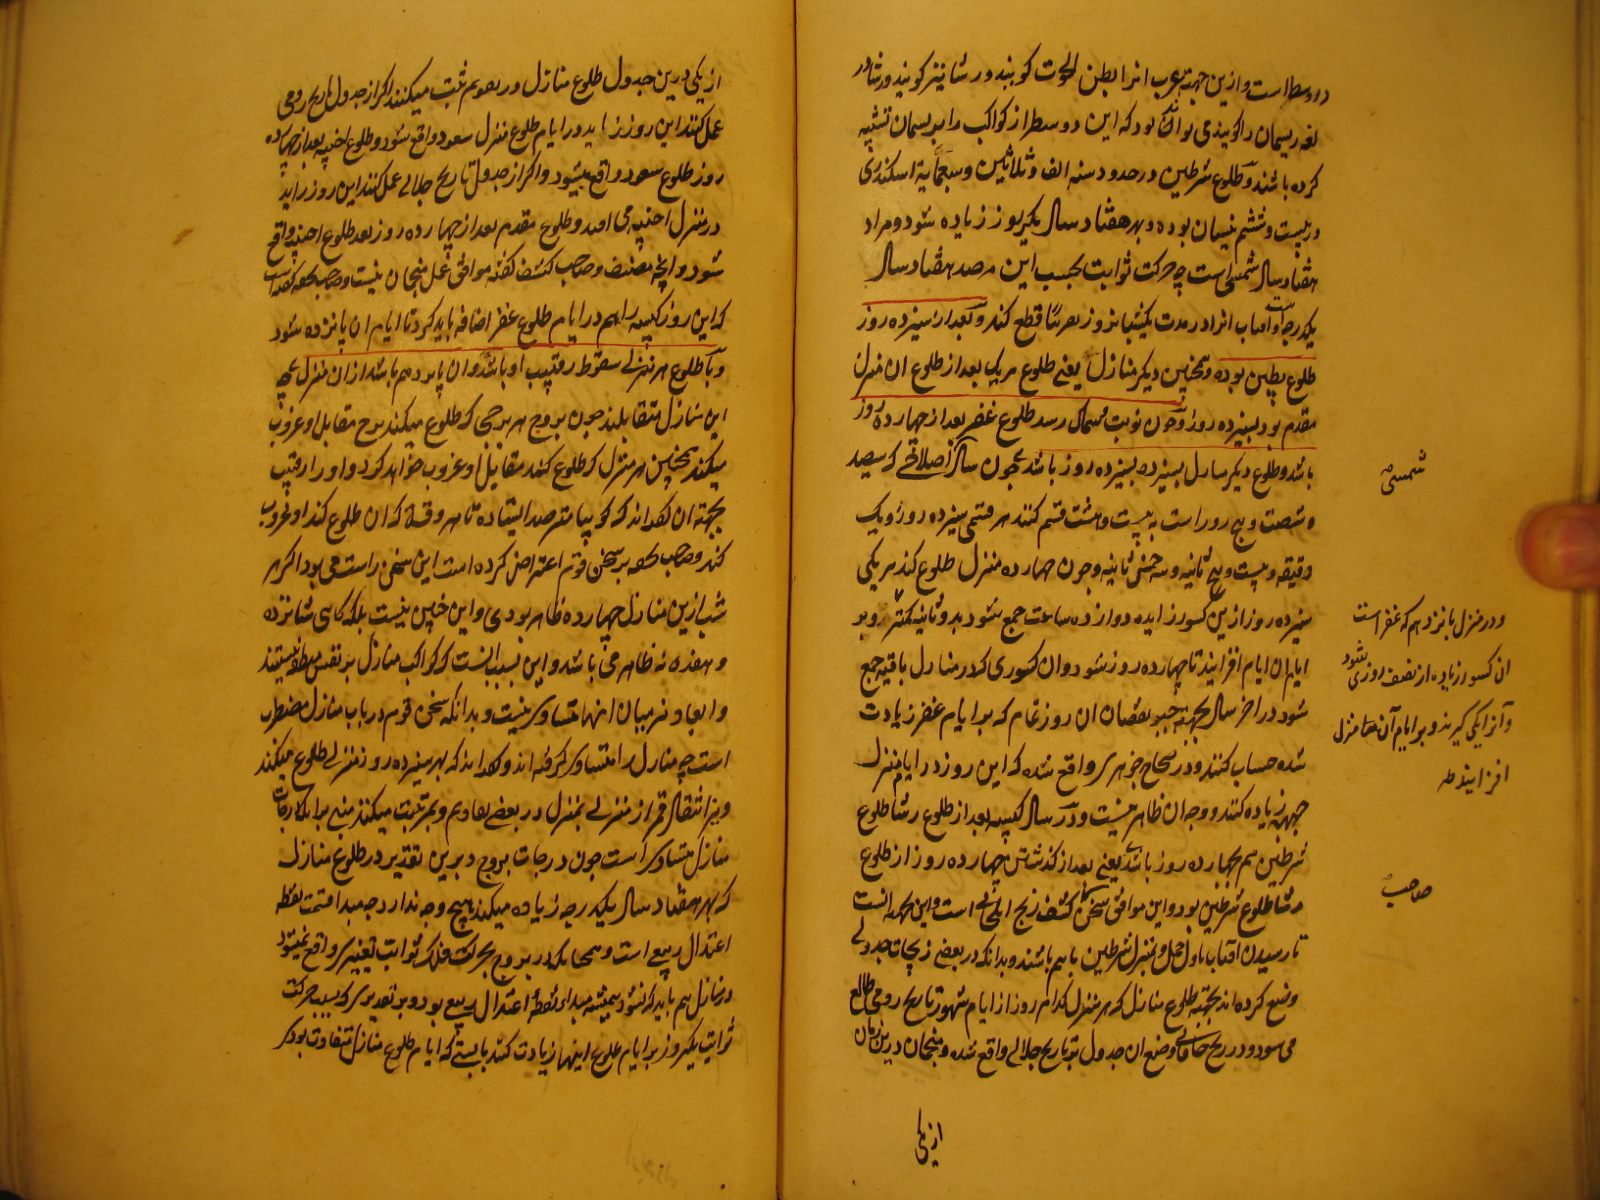 دارد و سطر است و ازین جهت عرب انرا بطن الحوت کویند و رشا نیز کویند و رشا در
لغه ریسمان را کویند می تواند بود که این دو سطر از کواکب را بریسمان تشبیه
کرده باشند و طلوع شرطین در حدود سنه الف و ثلاثین و سبعمایة اسکندری
در بیست و ششم نیسان بوده و بهر هفتاد سال یکروز زیاده شود و مراد
هفتاد سال شمسی است چه حرکت ثوابت بحسب این رصد بهفتاد سال
یکدرجه است و افتاب انرا در مدت یکشبانروز بتقریب قطع کند و بعد از سیزده روز
طلوع بطین بوده و همچنین دیکر منازل یعنی طلوع هر یک بعد از طلوع ان منزل
مقدم بود بسیزده روز و چون نوبت بسماک رسد طلوع غفر بعد از چهارده روز
باشد و طلوع دیکر منازل بسیزده بسیزده روز باشد چون سال اصطلاحی که سیصد
و شصت و پنج روز است به بیست و هشت قسم کنند هر قسمی سیزده روز و یک
دقیقه و بیست و پنج ثانیه و سه خمس ثانیه و چون چهارده منزل طلوع کند هر یکی
سیزده روز ازین کسور زایده دوازده ساعت جمع شود بدو ثانیه کمتر و بر
ایام ان ایام افزایند تا چهارده روز شود و ان کسوری که در منازل باقیه جمع
شود در اخر سال بجهة جبر نقصان ان روز تمام که بر ایام غفر زیادت
شده حساب کنند و در صحاح جوهری واقع شده که این روز در ایام منزل
جبهه زیاده کنند و وجه ان ظاهر نیست و در سال کبیسه بعد از طلوع رشا طلوع
شرطین هم بچهارده روز باشد یعنی بعد از کذشتن چهارده روز از طلوع
رشا طلوع شرطین بود و این موافق سخن کشف زیج ایلخانی است و این بجهة انست
تا رسیدن افتاب باول حمل و بمنزل شرطین باهم باشند و بدانکه در بعضی زیجات جدولی
وضع کرده اند بجهة طلوع منازل که هر منزل کدام روز از ایام شهور تاریخ رومی طالع
می شود و در زیج خاقانی وضع ان جدول بر تاریخ جلالی واقع شده و منجمان درین زمان
از یکی
شمسی
و در منزل پانزدهم که غفر است
ان کسور زیاده از نصف روزی شود
و آنرا یکی کیرند و بر ایام آن منزل
افزایند
صاحب
از یکی درین جدول طلوع منازل در تقویم ثبت میکنند اکر از جدول تاریخ رومی
عمل کنند این روز زاید در ایام طلوع منزل سعود واقع شود و طلوع اخبیه بعد از چهارده
روز طلوع سعود واقع میشود و اکر از جدول تاریخ جلالی عمل کنند این روز زاید
در منزل اخبیه می افتد و طلوع مقدم بعد از چهارده روز بعد طلوع اخبیه واقع
شود و انچه مصنف و صاحب کشف کفته موافق عمل منجمان نیست و صاحب تحفه کفته است
که این روز کبیسه را هم در ایام طلوع غفر اضافه باید کرد تا ایام ان پانزده شود
و با طلوع هر منزلی سقوط رقیب او باشد و ان پانزدهم باشد از ان منزل چه
این منازل متقابلند چون بروج هر برجی که طلوع میکند برج مقابل او غروب
میکند همچنین هر منزل که طلوع کند مقابل او غروب خواهد کرد و او را رقیب
بجهة ان کفته اند که کوییا مترصد ایستاده تا هر وقت که ان طلوع کند او غروب
کند و صاحب تحفه بر سخن قوم اعتراض کرده است این سخن راست می بود اکر هر
شب ازین منازل چهارده ظاهر بودی و این چنین نیست بلکه کاهی شانزده
و هفده نه ظاهر می باشد و این بسبب انست که کواکب منازل بر نفس منطقه نیستند
و ابعاد نیز میان انها متساوی نیست و بدانکه سخن قوم در باب منازل مضطرب
است چه منازل را متساوی کرفته اند و کفته اند که بهر سیزده روز منزلی طلوع میکند
و نیز انتقال قمر از منزلی بمنزل در بعضی تقاویم و غیره ثبت میکنند مبنی بر انکه درجات
منازل متساوی است چون درجات بروج و برین تقدیر در طلوع منازل
که بهر هفتاد سال یکدرجه زیاده میکنند هیچ وجه ندارد چه مبدا قسمت نقطه
اعتدال ربیعی است و همچنانکه در بروج بحرکت فلک ثوابت تغییری واقع نمیشود
در منازل هم باید که نشود همیشه مبدا نقطه اعتدال ربیع بود و بر تقدیری که بسبب حرکت
ثوابت یکروز بر ایام طلوع اینها زیادت کنند بایستی که ایام طلوع منازل متفاوت بود که